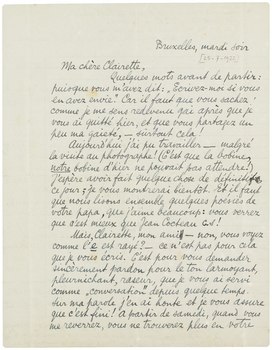 Bruxelles, mardi soir
Ma chère Clairette,
Quelques mots avant de partir:
puisque vous m'avez dit: "Écrivez-moi si vous
en avez envie". Car il faut que vous sachez
comme je me sens redevenu gai après que je
vous ai quitté hier, et que vous partagez un
peu ma gaieté, — surtout cela!
Aujourd'hui j'ai pu travailler — malgré
la vente au photographe! (C'est que la bobine,
notre bobine d'hier ne pouvait pas attendre!)
J'espère avoir fait quelque chose de définitif
ce jour; je vous montrerai bientôt. Et il faut
que nous lisons ensemble quelques poésies de
votre papa, que j'aime beaucoup: vous verrez
que c'est mieux que Jean Cocteau &
Mais, Clairette, mon — non, vous voyez
comme l'e est rayé? — ce n'est pas pour cela
que je vous écris. C'est pour vous demander
sincèrement pardon pour le ton larmoyant,
pleurnichant, raseur, que je vous ai servi
comme "conversation" depuis quelque temps.
Sur ma parole j'en ai honte et je vous assure
que c'est fini! À partir de samedi, quand vous
me reverrez, vous ne trouverez plus en votre